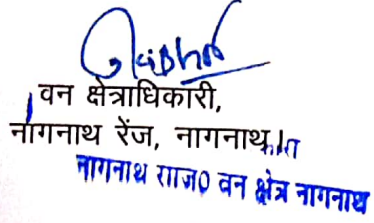 वन क्षेत्राधिकारी,
नागनाथ रेंज, नागनाथ।
नागनाथ राजि० वन क्षेत्र नागनाथ